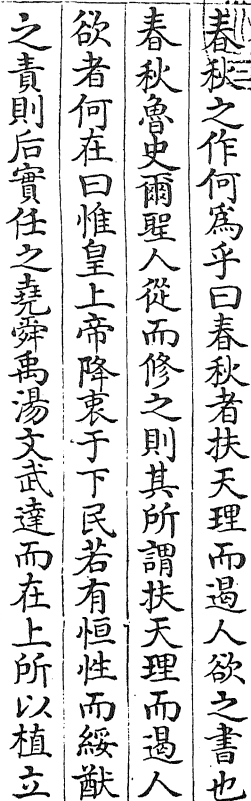 春秋之作何爲乎曰春秋者扶天理而遏人欲之書也
春秋魯史爾聖人從而修之則其所謂扶天理而遏人
欲者何在曰惟皇上帝降衷于下民若有恒性而綏猷
之責則后實任之堯舜禹湯文武達而在上所以植立